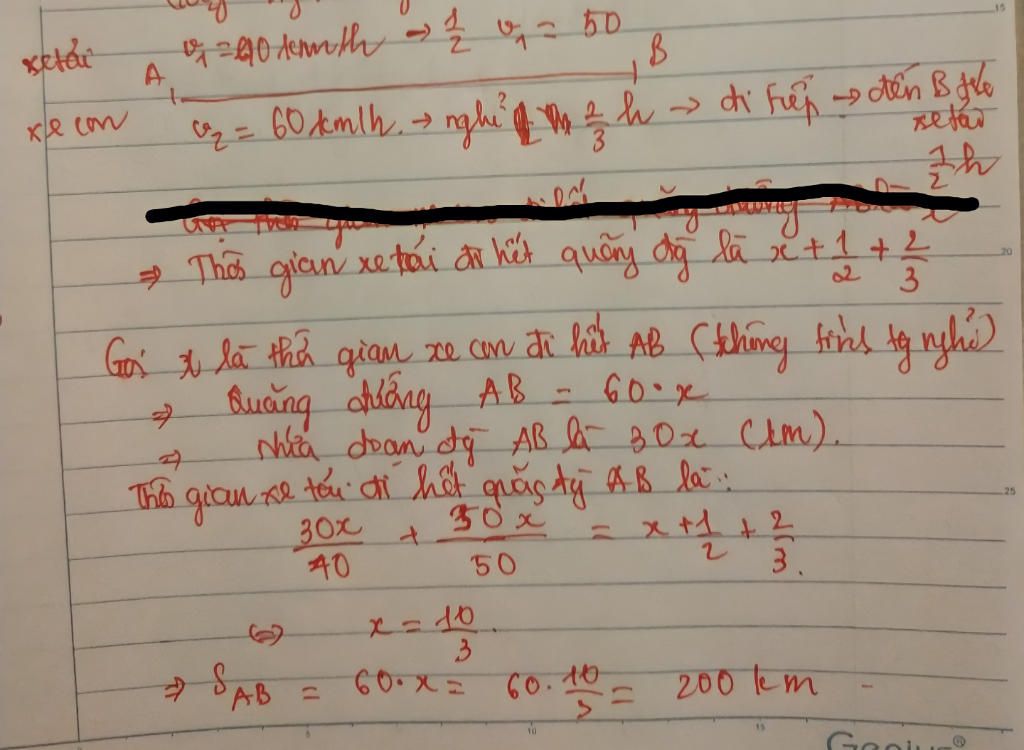 xe tải v₁ = 40 km/h → 1/2 v₁ = 50
A B
xe con v₂ = 60 km/h. → nghỉ 2/3 h → đi tiếp → đến B
xe tải
1/2 h
⇒ Thời gian xe tải đi hết quãng đg là x + 1/2 + 2/3
Gọi x là thời gian xe con đi hết AB (không tính tg nghỉ)
⇒ Quãng đường AB = 60·x
⇒ nửa đoạn đg AB là 30x (km).
Thời gian xe tải đi hết quãng đg AB là:
30x/40 + 30x/50 = x + 1/2 + 2/3.
⇔ x = 10/3.
⇒ S_AB = 60·x = 60·10/3 = 200 km
15
20
25
5
10
15